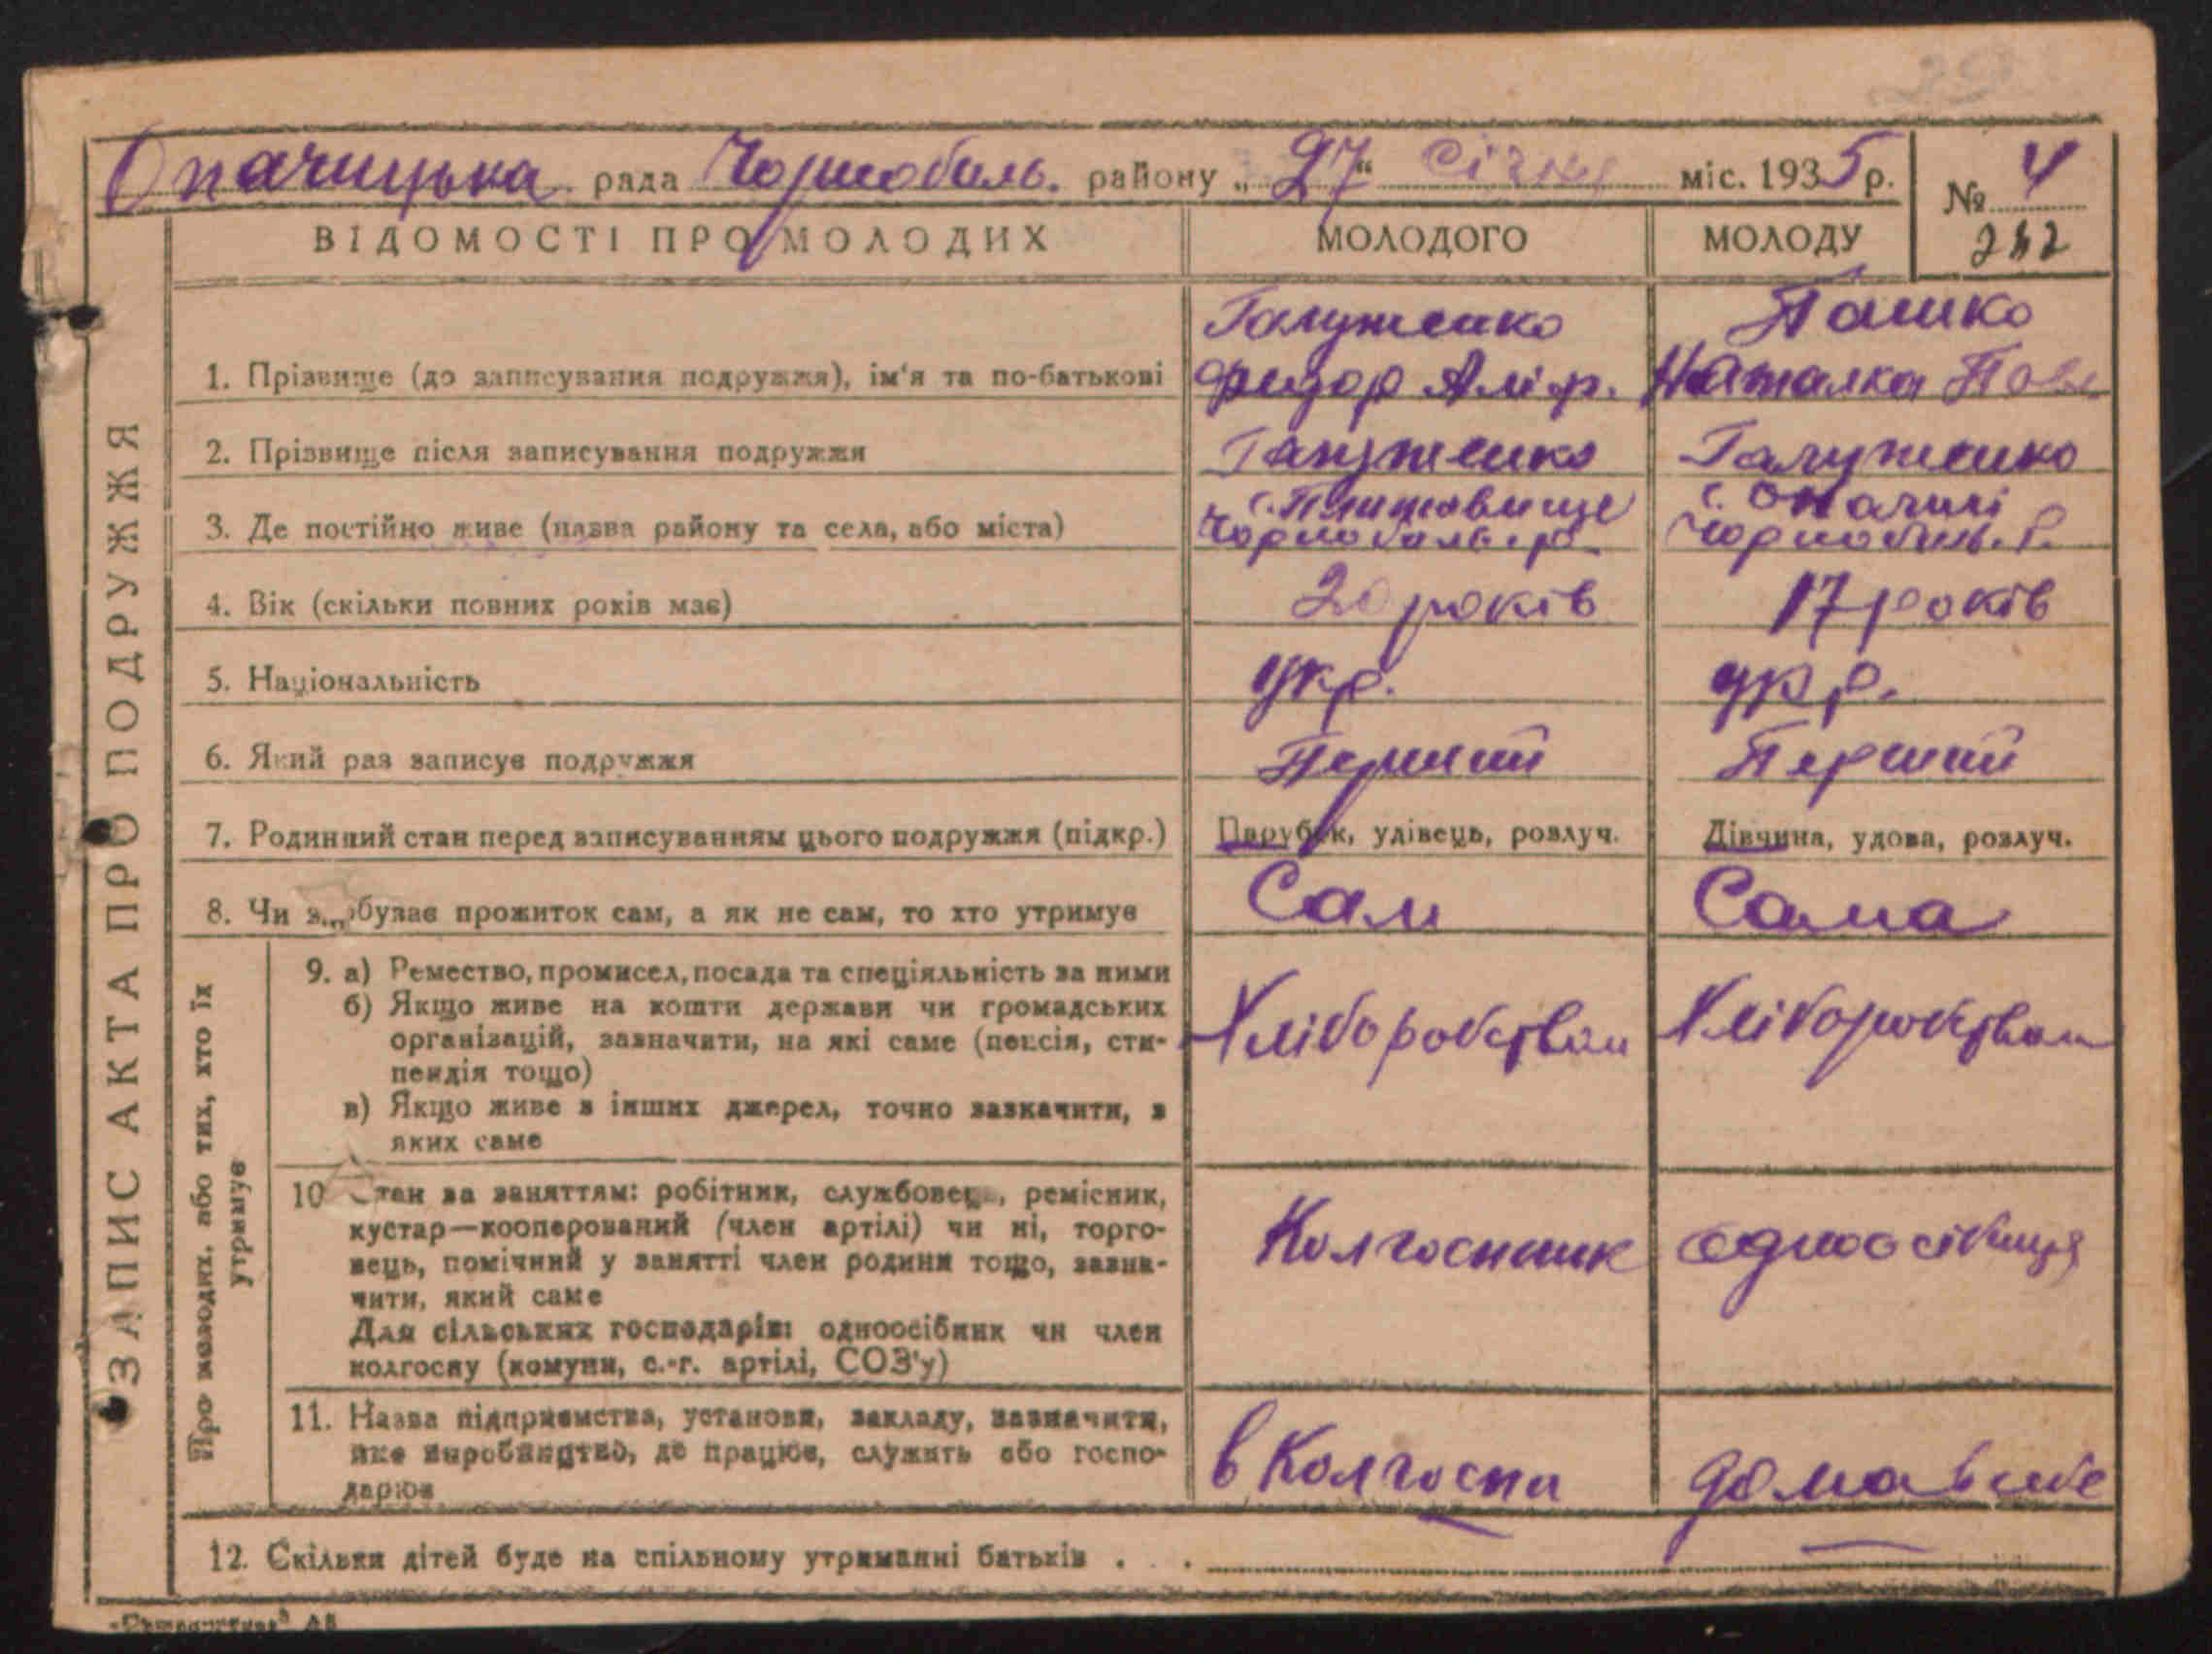 Опачицька рада Чорнобиль. району „27“ січня міс. 1935 р.
№ 4
ВІДОМОСТІ ПРО МОЛОДИХ МОЛОДОГО МОЛОДУ
ЗАПИС АКТА ПРО ПОДРУЖЖЯ
Галуженко Пашко
1. Прізвище (до записування подружжя), ім'я та по-батькові Фидор Наталка Пав
2. Прізвище після записування подружжя Галуженко Галуженко
с. Плитовище с. Опачичі
3. Де постійно живе (назва району та села, або міста) Чорнобиль. р. Чорнобиль. р.
4. Вік (скільки повних років має) 20 років 17 років
5. Національність укр. укр.
6. Який раз записує подружжя Перший Перший
7. Родинний стан перед записуванням цього подружжя (підкр.) Парубок, удівець, розлуч. Дівчина, удова, розлуч.
8. Чи з..обуває прожиток сам, а як не сам, то хто утримує Сам Сама
Про молодих, або тих, хто їх
утримує
9. а) Ремество, промисел, посада та спеціяльність за ними
б) Якщо живе на кошти держави чи громадських
організацій, зазначити, на які саме (пенсія, сти-
пендія тощо)
в) Якщо живе з інших джерел, точно зазначити, з
яких саме
Хліборобством Хліборобством
10 Стан за заняттям: робітник, службовець, ремісник,
кустар—кооперований (член артілі) чи ні, торго-
вець, помічний у занятті член родини тощо, зазна-
чити, який саме
Для сільських господарів: одноосібник чи член
колгоспу (комуни, с.-г. артілі, СОЗ'у)
Колгоспник одноосібниця
11. Назва підприємства, установи, закладу, зазначити,
яке виробництво, де працює, служить або госпо-
дарює
в Колгоспи дома в себе
12. Скільки дітей буде на спільному утриманні батьків . . .